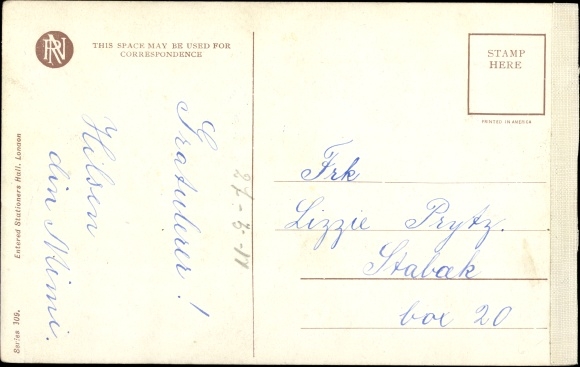 RN
THIS SPACE MAY BE USED FOR
CORRESPONDENCE
STAMP
HERE
PRINTED IN AMERICA
Gratulerer!
Hilsen
din Mimi.
Frk
Lizzie Prytz.
Stabæk
box 20
Entered Stationers Hall, London
Series 109.